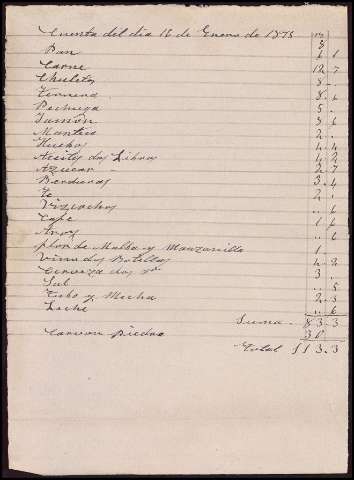 Cuenta del dia 16 de Enero de 1875
Pan 6 1
Carne 12 7
Chuletas 8 -
Ternera 8 6
Pechuga 5 -
Jamon 3 6
Manteca 2 -
Huebos 4 4
Aceite dos Libras 4 2
Azucar - 2 7
Berduras 3 4
Te 2 -
Vizcochos .. 6
Cafe 1 6
Aroz .. 6
flor de Malba y Manzanilla 1 -
Vino dos Botellas 4 2
Cerveza dos 3 -
Sal .. 5
Cebo y Mecha 2 5
Leche .. 6
Suma - 83 3
Carvon piedra 30
Total 113.3